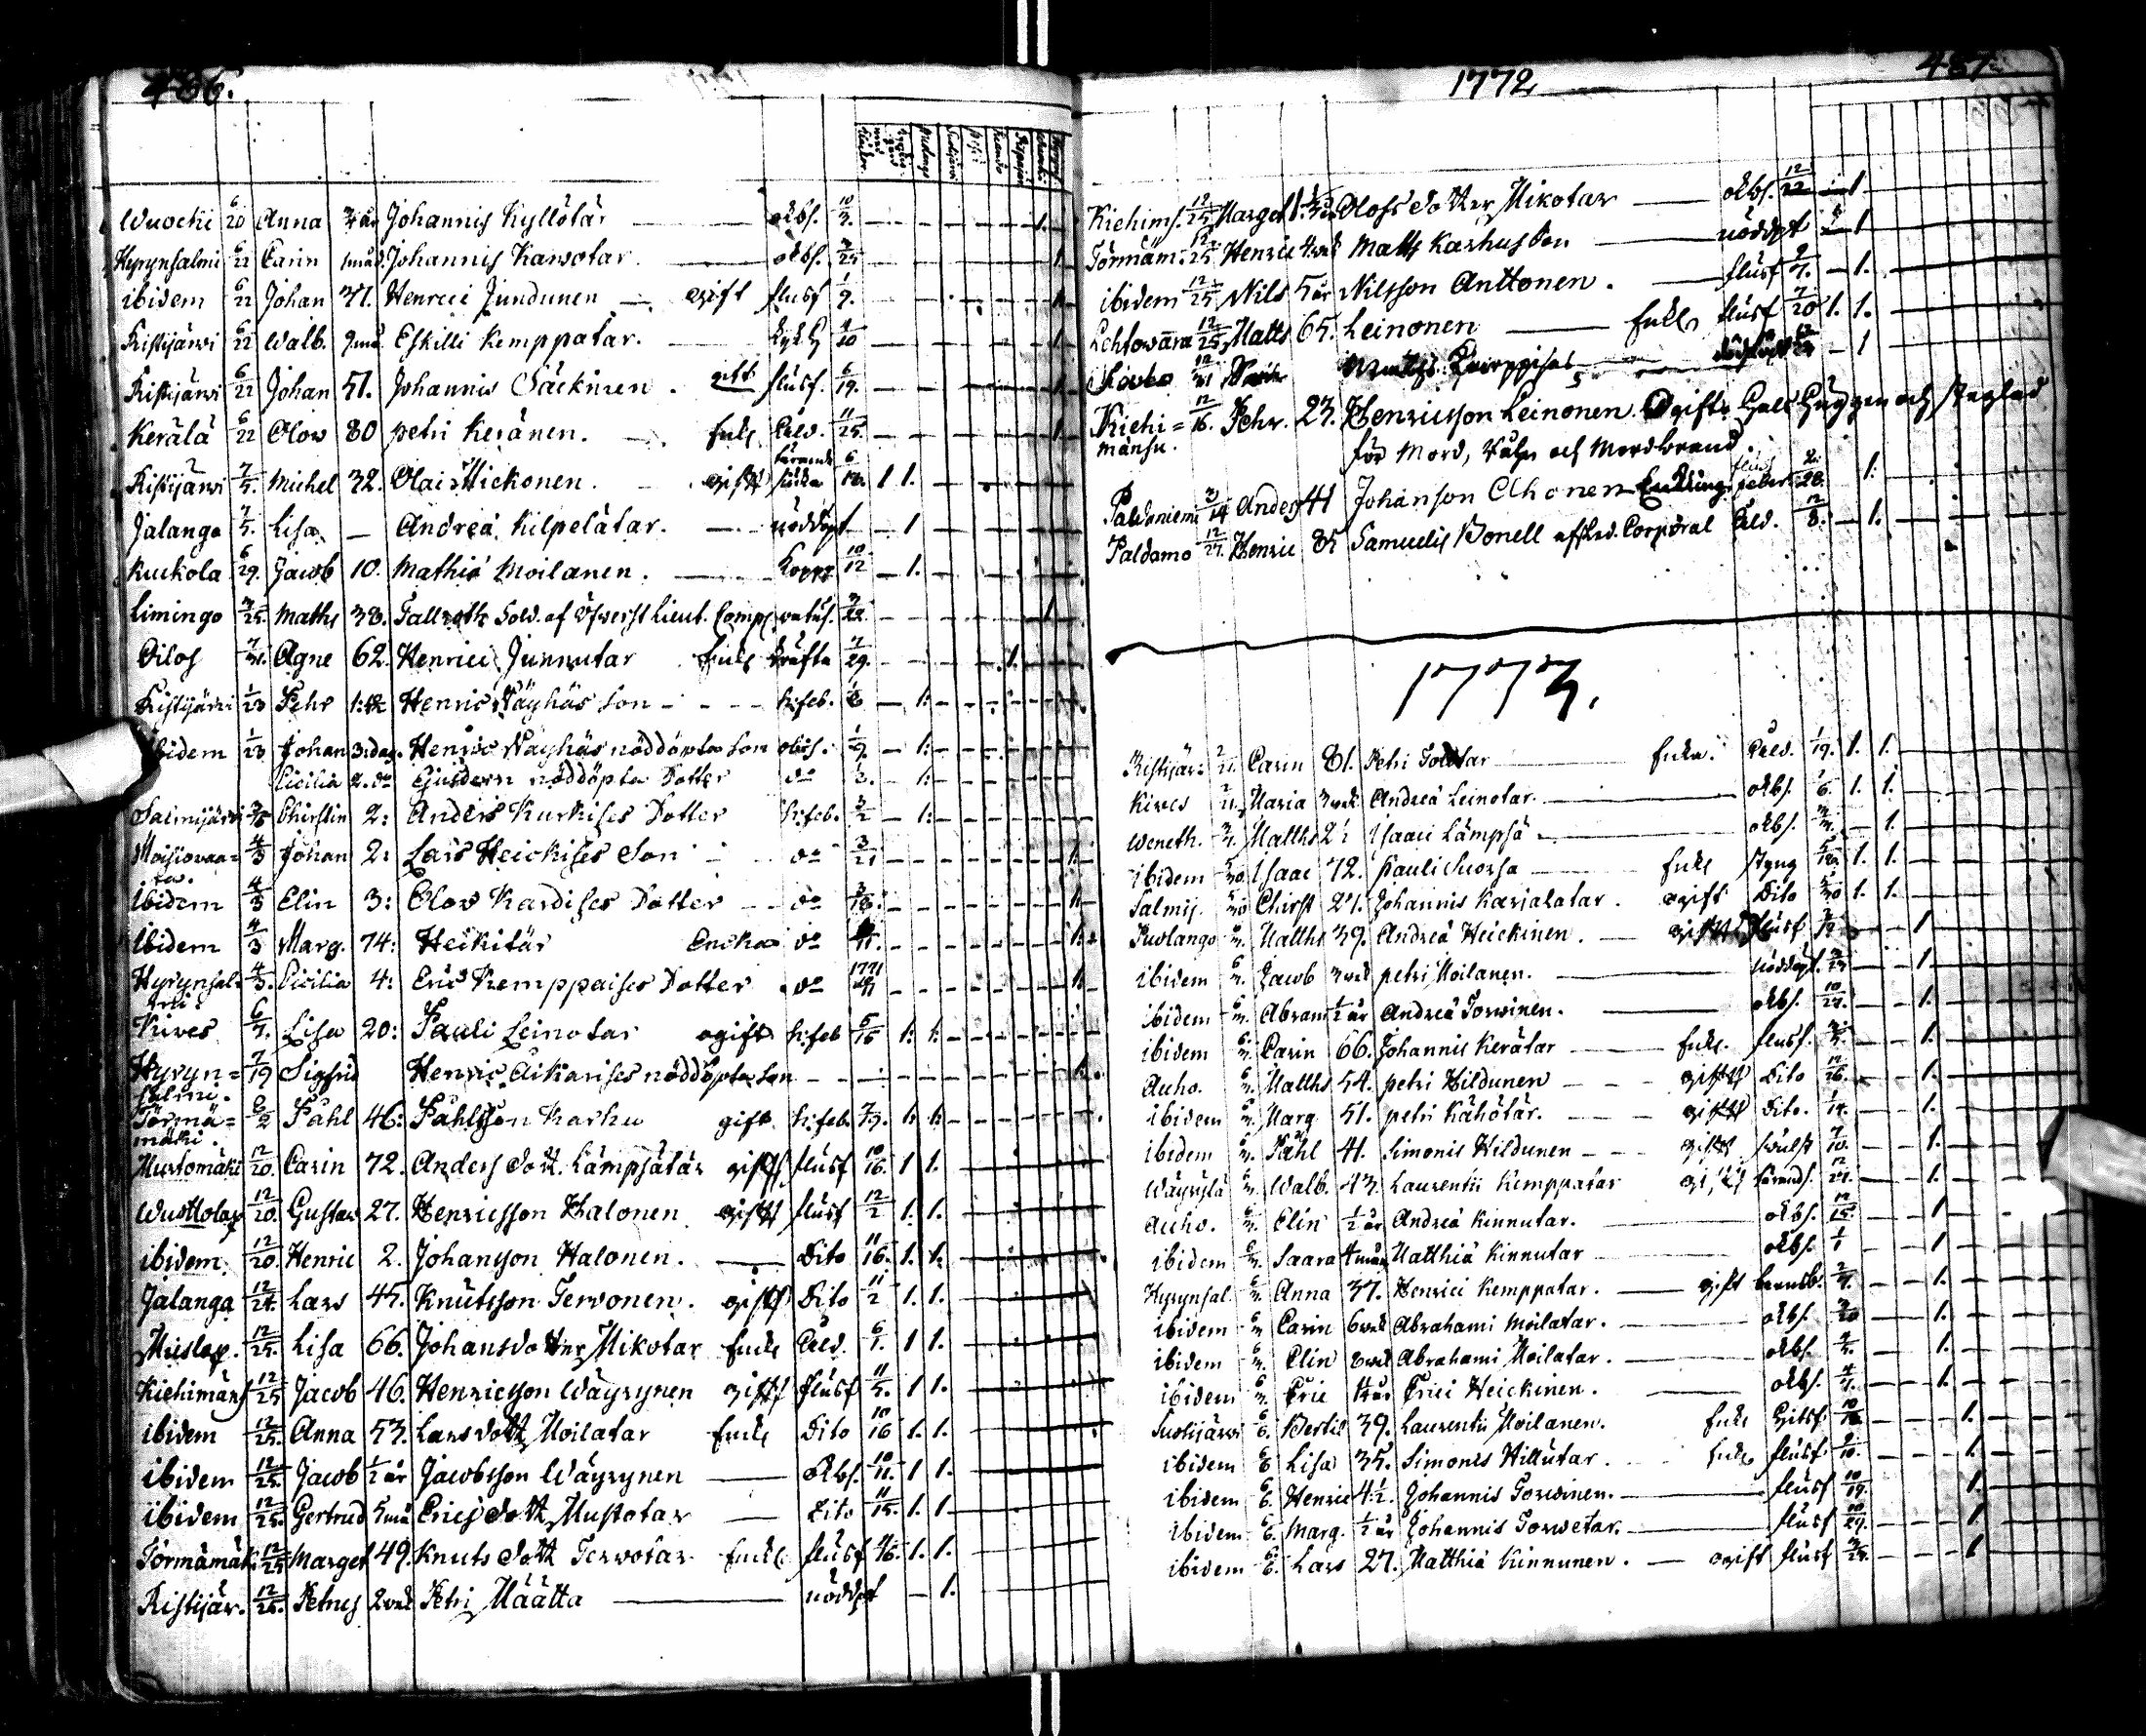 486.
Wuocki 6/20 Anna 3/4 år Johannis Kyllötär okbs. 10/3. 1.
Hyrynsalmi 6/22 Carin 1 mån. Johannis Karwotar. okbs. 3/25 1.
ibidem 6/22 Johan 37. Henrici Jundunen gift flusf 1/9. 1.
Kistijärwi 6/22 Walb. 9 må Eskilli Kemppatar. 4/10 1.
Kistijärwi 6/22 Johan 51. Johannis Säckinen. gift flusf. 6/19. 1.
Kerälä 6/22 Olow 80 petri Keränen. Enkl. Åld. 11/25. 1.
Ristijärwi 7/5. Michel 32. Olai Mickonen. gift tärande siuka 6/12. 1 1.
Jalanga 7/5. Lisa — Andreä Kilpelätar. nöddöpt 1
Kuckola 6/29. Jacob 10. Mathiä Moilanen. Kopp 10/12 1.
Limingo 3/25. Maths 38. Tallroth Sold. af Öfwerst Lieut. Comp. watus. 3/22. 1
Oilos 7/31. Agne 62. Henrici Junnutar Enkl kräfta 7/29. 1.
Ristijärwi 1/23 Pehr Henric Näyhäs Son h:feb. 1/8 1:
Ibidem 1/23 Johan 3:dag. Henric Näyhäs nöddöpta Son okbs. 1/9. 1:
Cicilia 2. do Ejusdem nöddöpta Dotter do 3. 1:
Salmijärwi Christin 2: Anders Kurkises Dotter h:feb. 3/2 1:
Moisiowaa=ra. 4/3 Johan 2: Lars Heickises Son do 3/21 1.
Ibidem 4/3 Elin 3: Olow Kardises Dotter do 3/13. 1.
Ibidem 4/3 Marg. 74: Heikitär Encka do 11. 1:
Hyrynsal=mi. 4/3. Cicilia 4: Eric Kemppaises Dotter do 1771 1:
Kives 6/7. Lisa 20: Pauli Leinotar ogift h:feb 5/15 1: 1:
Hyryn=salmi. 7/19 Sigfrid Henric Aikarises nöddöpta Son 1.
Törmä=mäki. 8/2 Påhl 46: Påhlsson Karhu gift h:feb. 7/9. 1: 1:
Murtomäki 12/20. Carin 72. Anders Dott. Lämpsätär gift flusf 10/16. 1 1.
Wuottolax 12/20. Gustaw 27. Henricsson Halonen gift flusf 12/2 1. 1.
ibidem. 12/20. Henric 2. Johansson Halonen. Dito 11/16. 1. 1.
Jalanga 12/21. Lars 45. Knutsson Terwonen. gift Dito 11/2 1. 1.
Mieslax. 12/25. Lisa 66. Johansdotter Mikotar Enkl Åld. 6/1. 1 1.
Kiehimäns 12/25 Jacob 46. Henricsson Wäyrynen gift flusf 11/5. 1 1.
ibidem 12/25. Anna 53. Lars dott. Moilatar Enkl Dito 10/16 1. 1.
ibidem 12/25. Jacob 1/2 år Jacobsson Wäyrynen okbs. 10/11. 1 1.
ibidem 12/25. Gertrud 5 må Erics dott. Mustotar Dito 11/15. 1. 1
Törmämäk. 12/25 Marget 49. Knuts dott Terwotar Enkl. flusf 1. 1.
Ristijär. 12/26. Petrus 2 wek Petri Määttä nöddpt 1.
1772
487.
Kiehims. 12/25 Marget Olofs dotter Mikotar okbs. 12/22 1
Törmäm. 12/25 Henric 4 wek Matts Karhus Son nöddpt 1
ibidem 12/25. Nils 5 år Nilsson Anttonen. flusf 9/7. 1.
Lehtowara 12/25 Matts 65. Leinonen Enkl. flusf 7/20 1. 1.
1
Kiehi=mänsu. 12/16. Pehr. 27. Henricsson Leinonen Ogift. Halshuggen och Steglad
för Mord, Rån och Mordbrand.
Paldaniemi 3/14 Anders 41 Johanson Ahonen Enkling feber 2/28. 1:
Paldamo 12/27. Henric 85 Samuelis Bonell affsked. Corporal Åld. 12/8. 1.
1773.
Ristijär: 2/21. Carin 81. Petri Tolotar Enka. Åld. 1/19. 1. 1.
Kives 2/21. Maria 3 wek Andreä Leinotar. okbs. 1/6. 1. 1.
Weneth. Matths 2 1/2 Isaaci Lämpsä okbs. 1.
ibidem 5/30. Isaac 72. Pauli Suorsa Enkl Styng 5/12. 1. 1.
Salmij. 5/30 Christ 27. Johannis Karjalatar. ogift Dito 5/30 1. 1.
Puolango 6/3. Matths 39. Andreä Heickinen. gift flusf. 1
ibidem 6/3. Jacob 3 wek petri Moilanen. nöddöpt. 1
ibidem 6/3. Abram 1/2 år Andreä Torwinen. okbs. 10/27. 1.
ibidem 6/3. Carin 66. Johannis Kerätar Enkl. flusf. 1.
Auho. 6/3. Matths 54. petri Hildunen gift Dito 12/26. 1.
ibidem 6/3. Marg 51. petri Kähötär. gift Dito. 1/14. 1.
ibidem 6/3. Påhl 41. Simonis Hildunen gift swulst 7/10. 1.
Wäyrylä 6/3. Walb. 43. Laurentii Kemppatar gift tärands. 12/27. 1.
Auho. 6/3. Elin 1/2 år Andreä Kinnutar. okbs. 12/15. 1
ibidem 6/3. Saara 4 mån Matthiä Kinnutar okbs. 1/1 1
Hyrynsal. 6/3 Anna 37. Henrici Kemppatar. gift barnsb. 2/7. 1.
ibidem 6/3 Carin 6 wek Abrahami Moilatar. okbs. 3/20 1.
ibidem 6/3. Elin 3 wek Abrahami Moilatar. okbs. 1.
ibidem 6/3. Eric Erici Heickinen. okbs. 4/7. 1.
Suolijärwi 6/6. Bertil 39. Laurentii Moilanen. Enkl Hitsf. 1.
ibidem 6/6 Lisa 35. Simonis Hillutar. Enkl flusf 9/10. 1.
ibidem 6/6. Henric 4 1/2. Johannis Torwinen. flusf 10/19. 1.
ibidem 6/6. Marg. 1/2 år Johannis Torwetar. flusf 10/29. 1
ibidem 6/6. Lars 27. Matthiä Kinnunen. ogift flusf 1